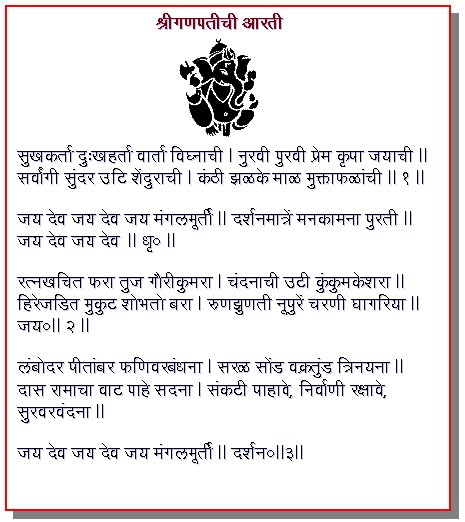 श्रीगणपतीची आरती
सुखकर्ता दुःखहर्ता वार्ता विघ्नाची | नुरवी पुरवी प्रेम कृपा जयाची ||
सर्वांगी सुंदर उटि शेंदुराची | कंठी झळके माळ मुक्ताफळांची || १ ||
जय देव जय देव जय मंगलमूर्ती || दर्शनमात्रें मनकामना पुरती ||
जय देव जय देव || धृ० ||
रत्नखचित फरा तुज गौरीकुमरा | चंदनाची उटी कुंकुमकेशरा ||
हिरेजडित मुकुट शोभतो बरा | रुणझुणती नूपुरें चरणी घागरिया ||
जय०|| २ ||
लंबोदर पीतांबर फणिवरबंधना | सरळ सोंड वक्रतुंड त्रिनयना ||
दास रामाचा वाट पाहे सदना | संकटी पाहावे, निर्वाणी रक्षावे,
सुरवरवंदना ||
जय देव जय देव जय मंगलमूर्ती || दर्शन०||३||